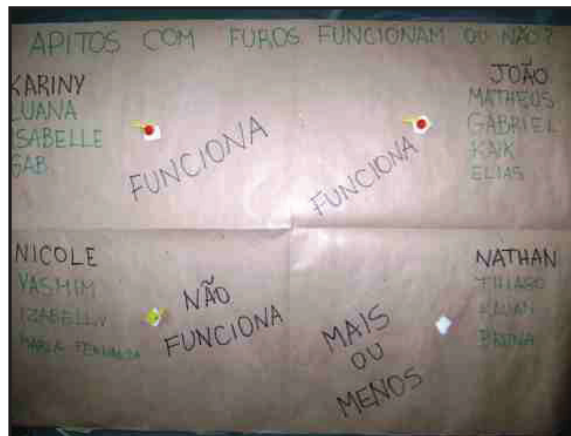 APITOS COM FUROS FUNCIONAM OU NÃO?
KARINY
LUANA
ISABELLE
GAB.
FUNCIONA
FUNCIONA
JOÃO
MATHEUS
GABRIEL
KAIK
ELIAS
NICOLE
YASMIM
IZABELLY
MARIA FERNANDA
NÃO
FUNCIONA
MAIS
OU
MENOS
NATHAN
THIAGO
KAUAN
BRUNA